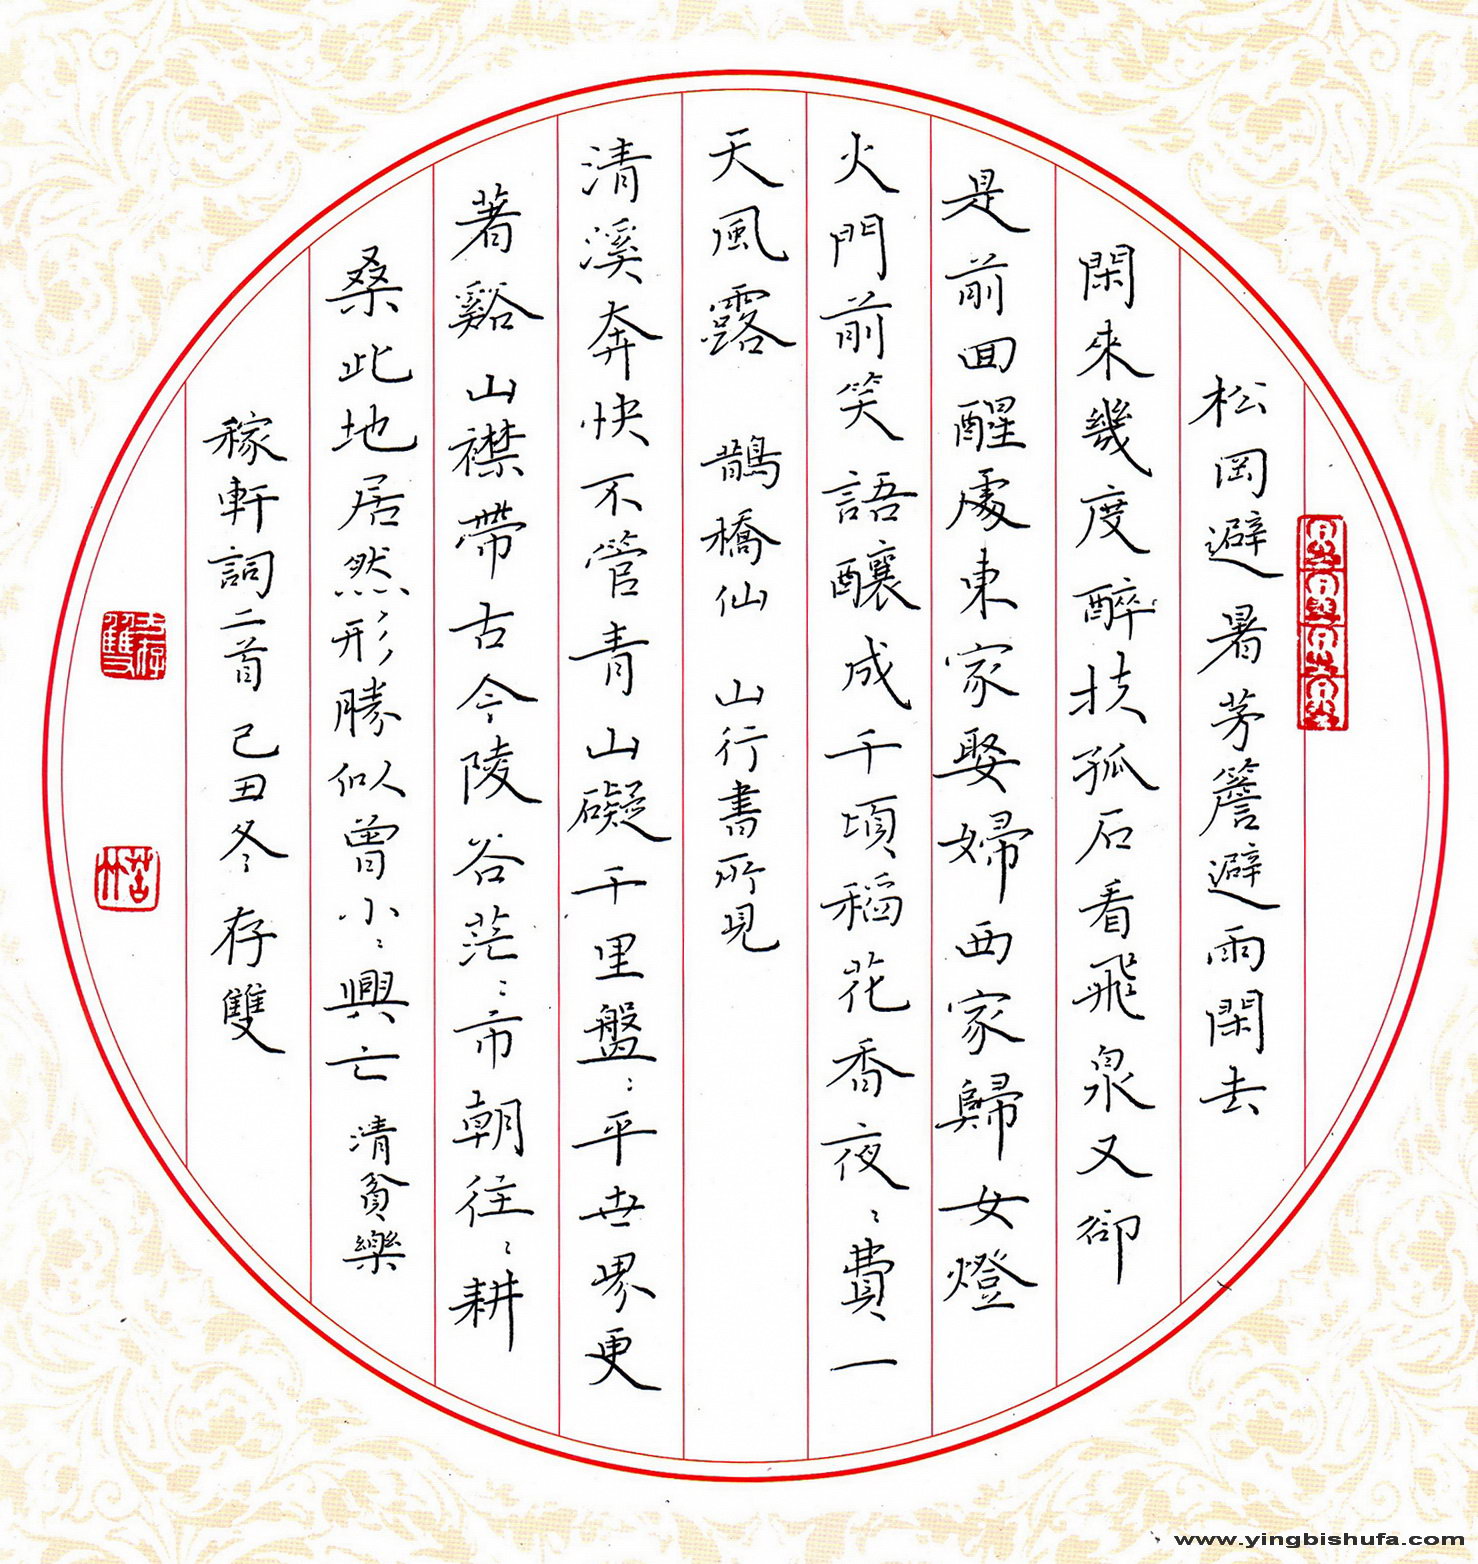 松岡避暑茅簷避雨閑去
閑來幾度醉扶孤石看飛泉又卻
是前回醒處東家娶婦西家歸女燈
火門前笑語釀成千頃稻花香夜〻費一
天風露 鵲橋仙 山行書所見
清溪奔快不管青山礙千里盤〻平世界更
著谿山襟帶古今陵谷茫〻市朝往〻耕
桑此地居然形勝似曾小〻興亡 清貧樂
稼軒詞二首 己丑冬 存雙
www.yingbishufa.com